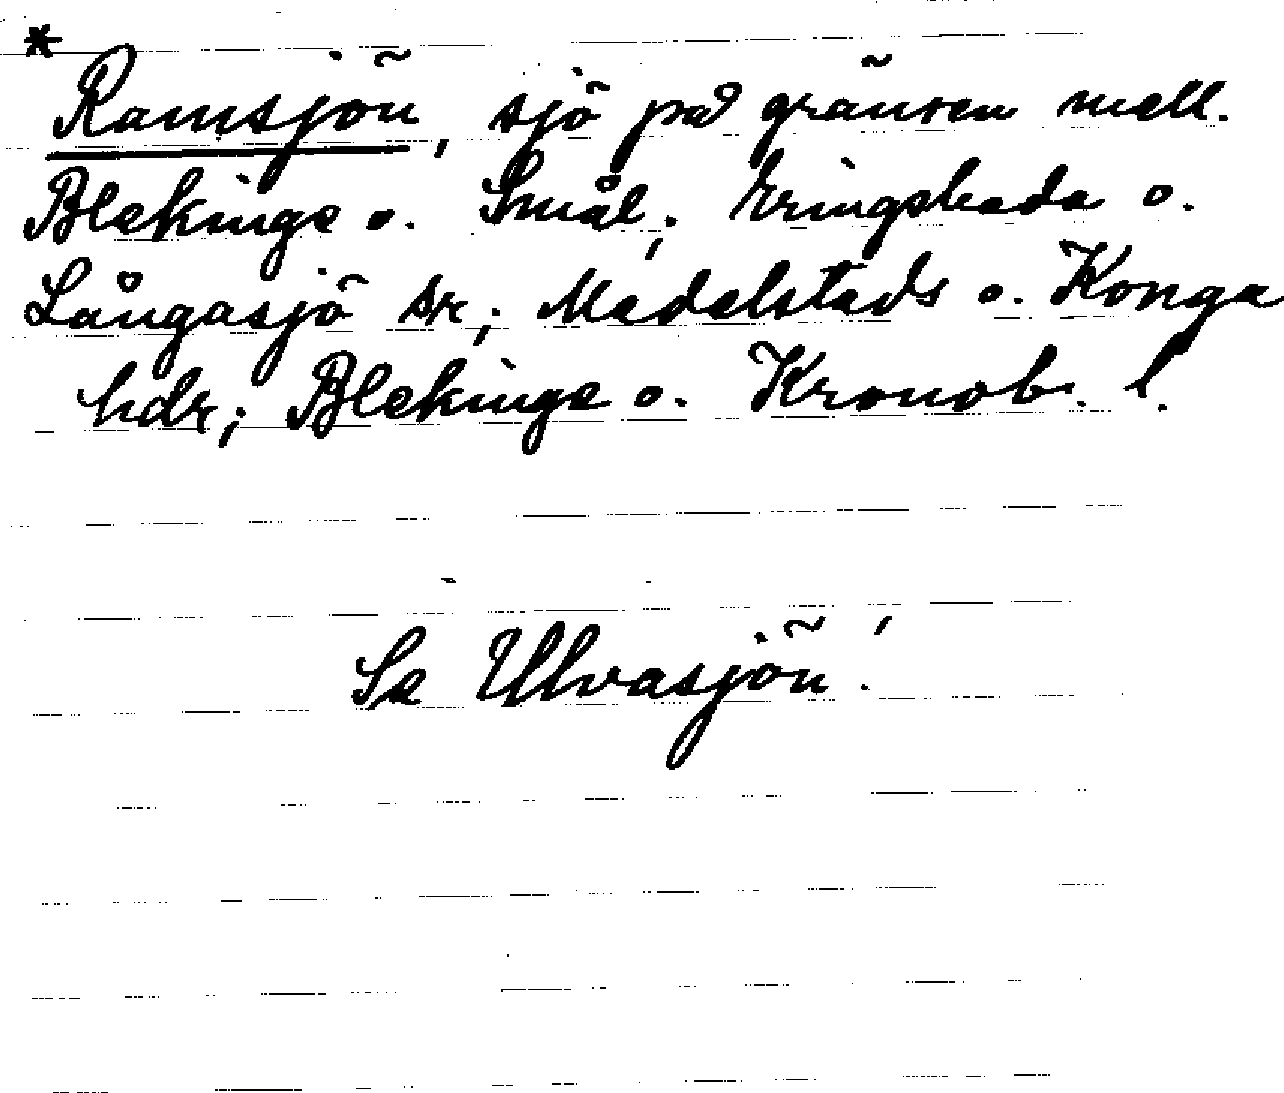 *
Ramsjön, sjö på gränsen mell.
Blekinge o. Smål.; Eringsboda o.
Långasjö sk; Medelstads o. Konga
hdr; Blekinge o. Kronob. l.
Se Ulvasjön!